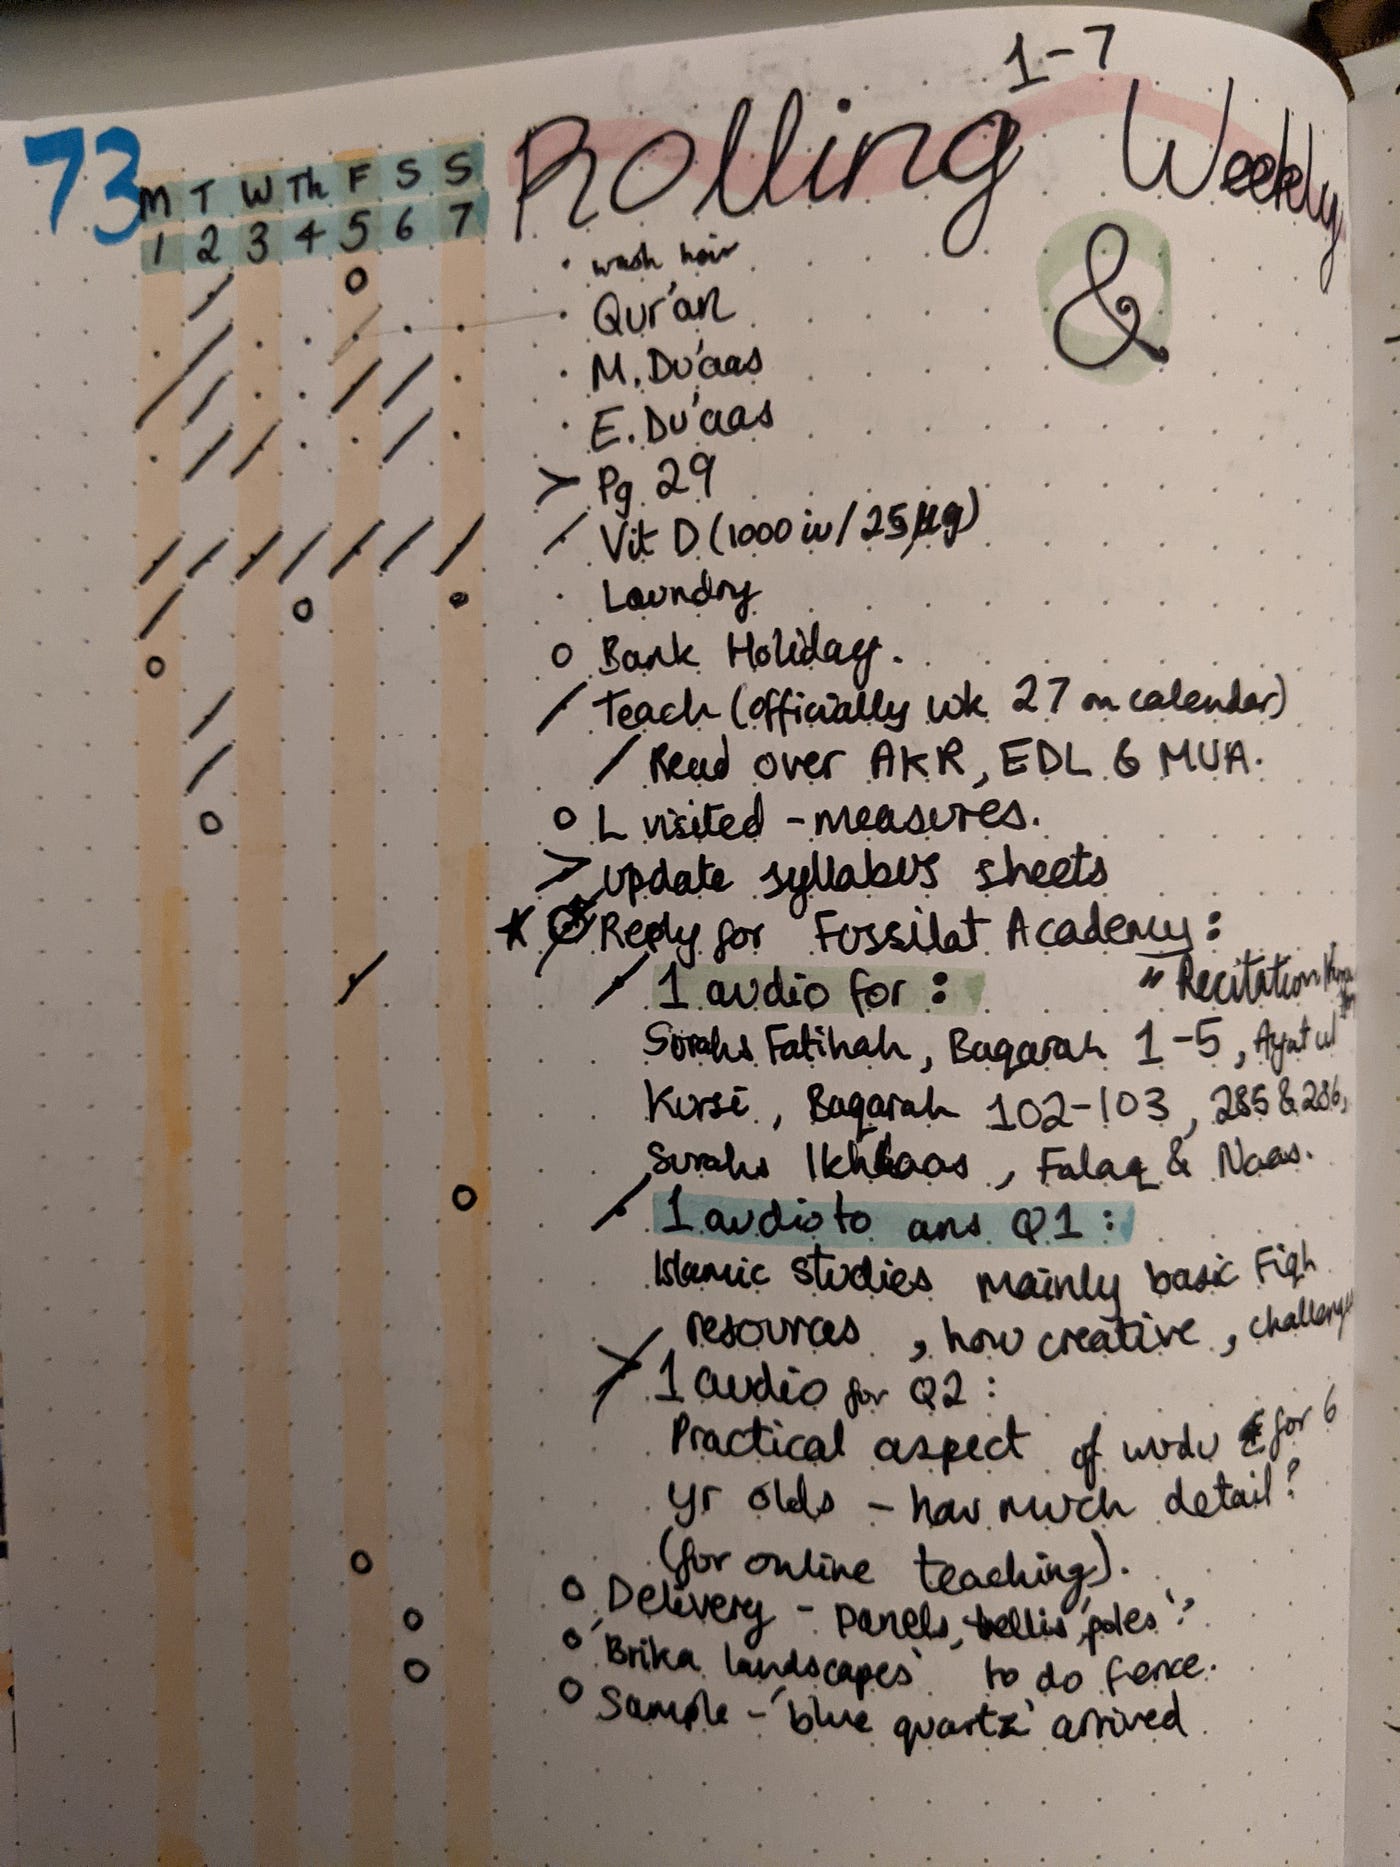 1-7
73
Rolling Weekly
&
M T W Th F S S
1 2 3 4 5 6 7
wash hair
Qur'an
M. Du'aas
E. Du'aas
> Pg 29
/ Vit D (1000 iu/25µg)
Laundry
o Bank Holiday.
/ Teach (officially wk 27 on calendar)
/ Read over AKR, EDL & MUA.
o L visited - measures.
> update syllabus sheets
Reply for Fussilat Academy:
/ 1 audio for: "Recitation
Surahs Fatihah, Baqarah 1-5, Ayatul
Kursi, Baqarah 102-103, 285 & 286,
Surahs Ikhlaas, Falaq & Naas.
/ 1 audio to ans Q1:
Islamic studies mainly basic Fiqh
resources, how creative,
1 audio for Q2:
Practical aspect of wudu for 6
yr olds - how much detail?
(for online teaching).
o Delivery - panels, 'poles'?
o 'Brika landscapes' to do fence.
o Sample - 'blue quartz' arrived